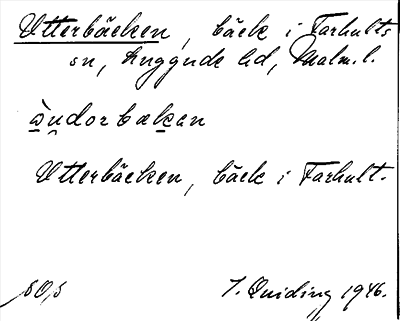 Utterbäcken, bäck i Farhults
sn, Luggude hd, Malm. l.
ùndorbækan
Utterbäcken, bäck i Farhult.
50,5
J. Quiding 1946.